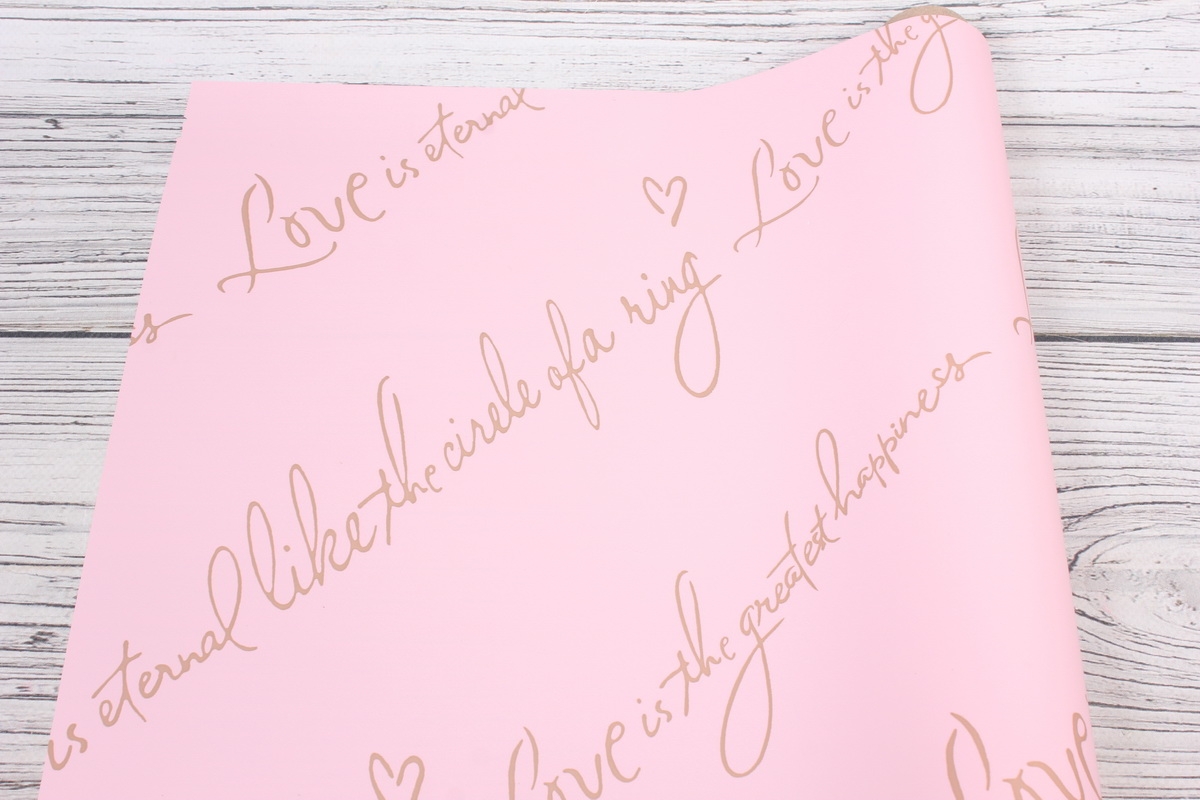 Love is eternal
Love is the g
s
is eternal like the circle of a ring
Love is the greatest happiness
Love